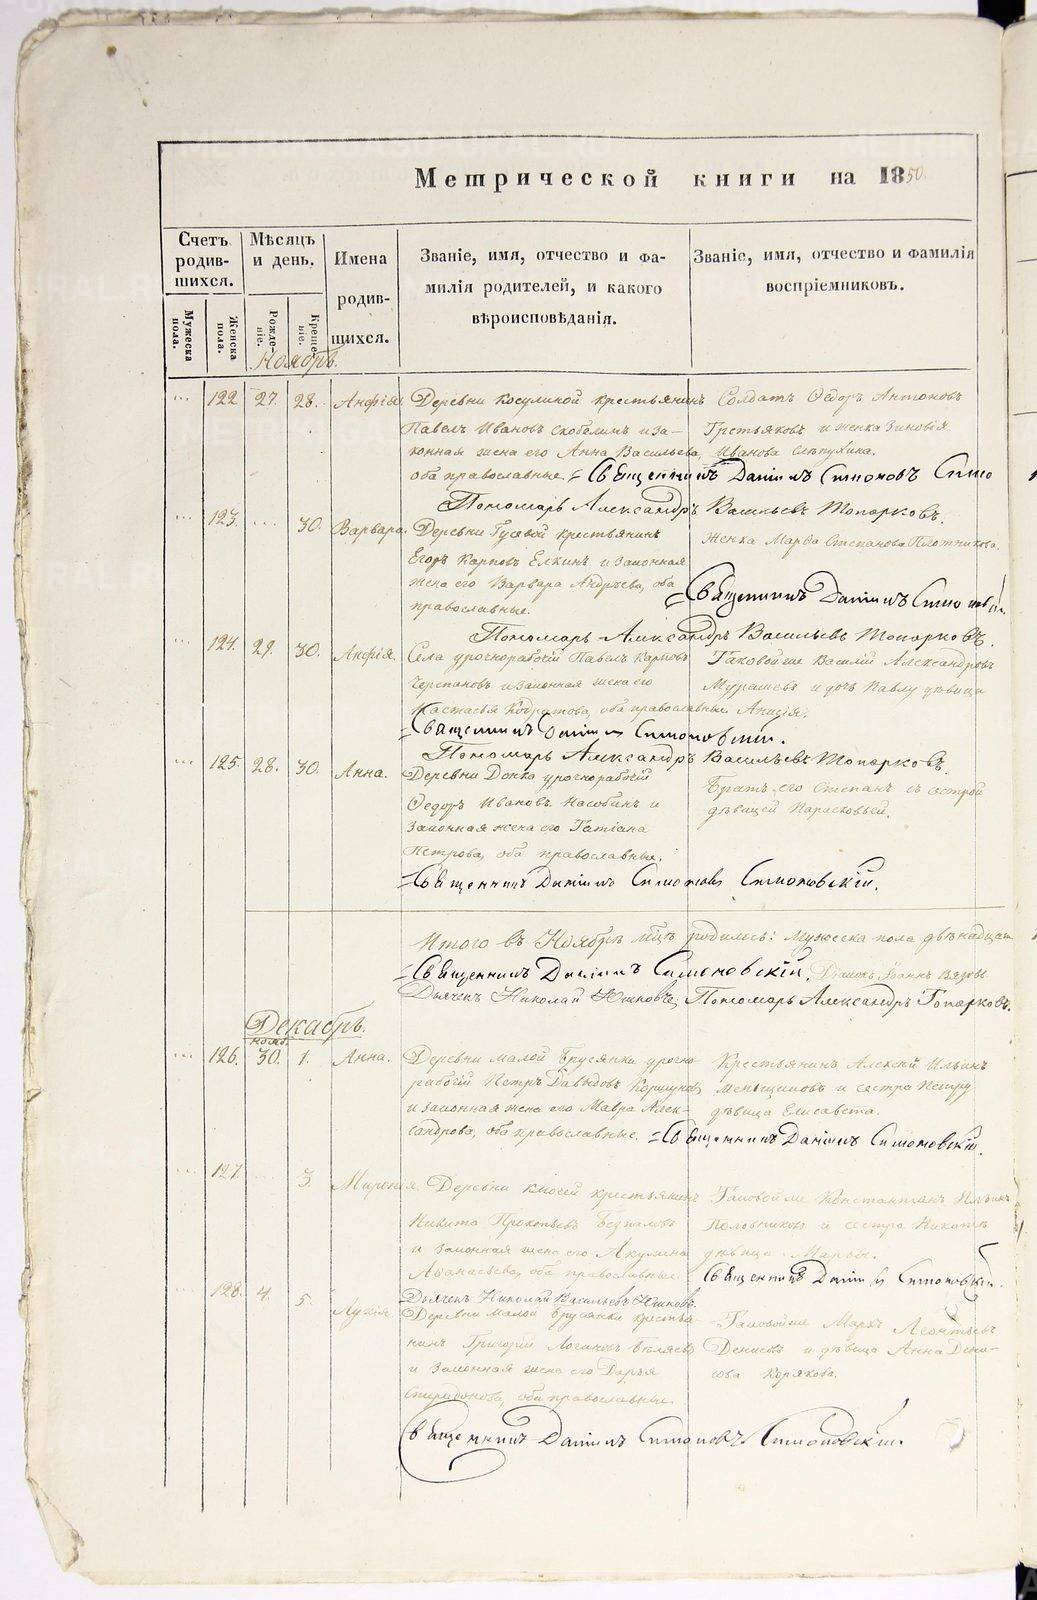 Метрической книги на 1850.
Счетъ родив-шихся.
Мѣсяцъ и день.
Имена родив-шихся.
Званіе, имя, отчество и фа-
милія родителей, и какого
вѣроисповѣданія.
Званіе, имя, отчество и фамилія
воспріемниковъ.
Мужеска пола.
Женска пола.
Рожде-ніе.
Креще-ніе.
Ноябрь.
122 27. 28. Анфія. Деревни Косулиной крестьянинъ Солдатъ Ѳедоръ Антоновъ
Павелъ Ивановъ Скобелинъ и за- Третьяковъ и женка Зиновія
конная жена его Анна Васильева, Иванова Слѣпухина.
оба православные. Священникъ Даніилъ Симоновъ
Пономарь Александръ Васильевъ Топорковъ.
123. 30. Варвара. Деревни Гусевой крестьянинъ женка Марѳа Степанова Плотникова.
Егоръ Карповъ Елкинъ и законная
жена его Варвара Андрѣева, оба
православные. Священникъ Даніилъ
Пономарь Александръ Васильевъ Топорковъ.
124. 29. 30. Анфія. Села урочнорабочій Павелъ Карповъ Таковой же Василій Александровъ
Черепановъ и законная жена его Мурашевъ и дочь Павлу дѣвица
Настасья оба православные Анисія.
Священникъ Даніилъ Симоновскій.
Пономарь Александръ Васильевъ Топорковъ.
125. 28. 30. Анна. Деревни урочнорабочій Братъ его Степанъ съ сестрой
Ѳедоръ Ивановъ и дѣвицей Парасковьей.
законная жена его Татіана
Петрова, оба православные.
Священникъ Даніилъ Симоновъ Симоновскій.
Итого въ Ноябрѣ мцѣ родилось: Мужеска пола двѣнадцат
Священникъ Даніилъ Симоновскій. Іоаннъ
Дьячекъ Николай Пономарь Александръ Топорковъ.
Декабрь.
нояб.
126. 30. 1. Анна. Деревни малой Брусянки урочно- Крестьянинъ Алексѣй Ильинъ
рабочій Петръ Давыдовъ Меньщиковъ и сестра Петру
и законная жена его Мавра Алек- дѣвица Елисавета.
сандрова, оба православные. Священникъ Даніилъ Симоновскій.
127. 3. Деревни крестьянинъ Таковой же Константинъ Ильинъ
Никита Прокопьевъ Половниковъ и сестра Никитѣ
и законная жена его Акулина дѣвица Марѳа.
Аѳанасьева, оба православные. Священникъ Даніилъ Симоновскій.
Дьячекъ Николай Васильевъ
128. 4. 5. Лукія. Деревни малой Брусянки крестья- Таковой же Маркъ Леонтьевъ
нинъ Григорій Логиновъ Бѣляевъ Денисовъ и дѣвица Анна Дени-
и законная жена его Дарья сова Корякова.
Спиридонова, оба православные
Священникъ Даніилъ Симоновъ Симоновскій.